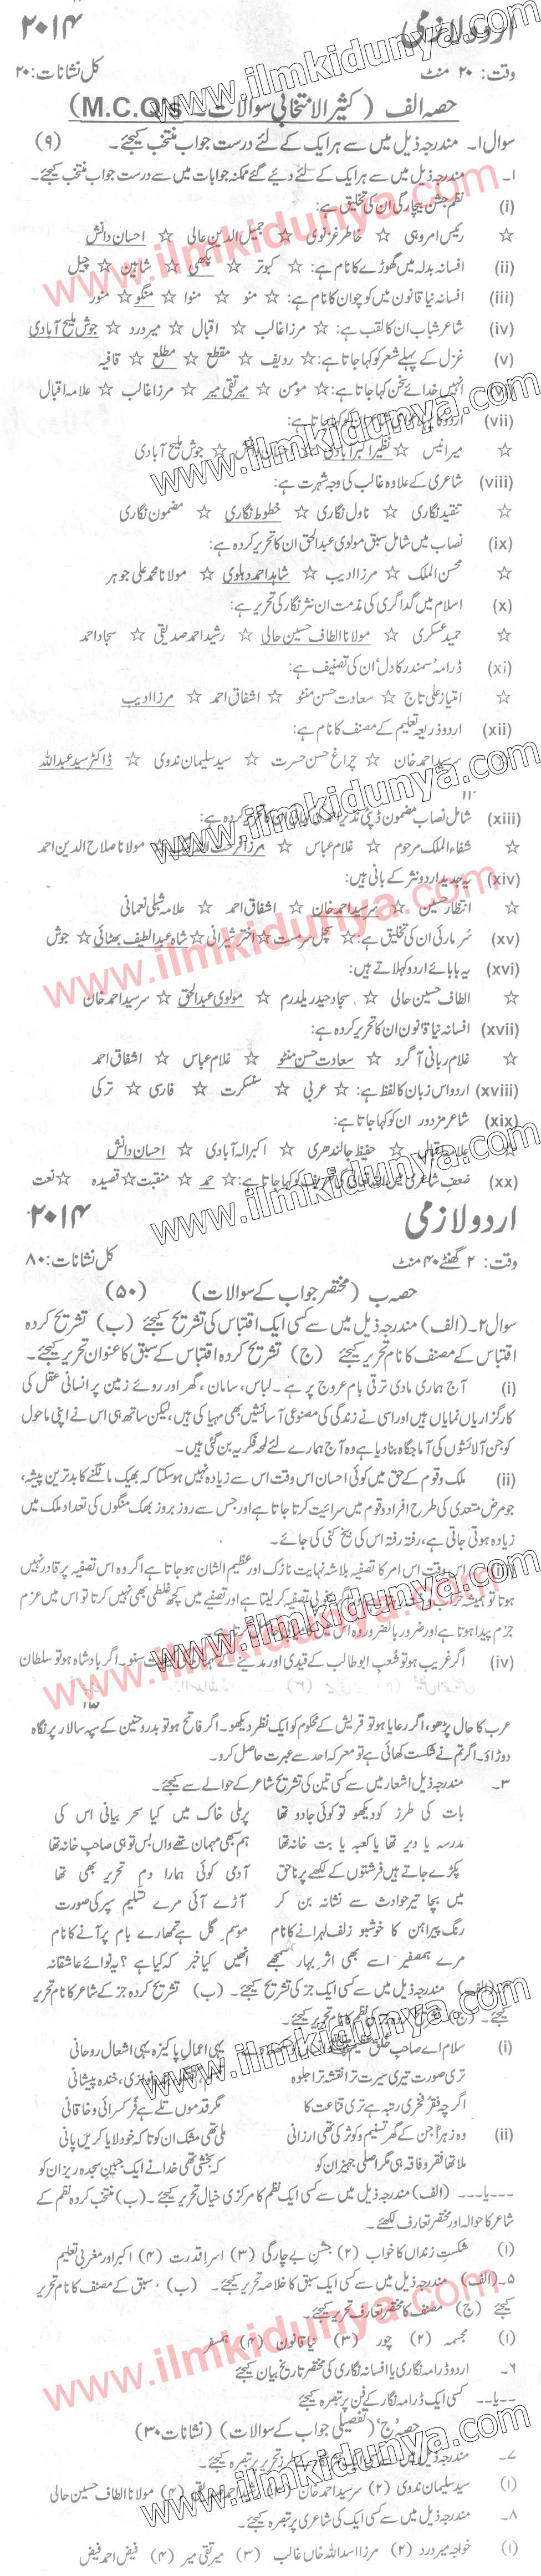 اردو لازمی ۲۰۱۴
وقت: ۲۰ منٹ کل نشانات: ۲۰
حصہ الف (کثیر الانتخابی سوالات۔ M.C.Q's)
سوال۱۔ مندرجہ ذیل میں سے ہر ایک کے لئے درست جواب منتخب کیجئے۔ (۹)
۱۔ مندرجہ ذیل میں سے ہر ایک کے لئے دیئے گئے ممکنہ جوابات میں سے درست جواب منتخب کیجئے۔
(i) نظم جشن بیچارگی ان کی تخلیق ہے:
☆ رئیس امروہی ☆ خاطر غزنوی ☆ جمیل الدین عالی ☆ احسان دانش
(ii) افسانہ بدلہ میں گھوڑے کا نام ہے: ☆ کبوتر ☆ پنچھی ☆ شاہین ☆ چیل
(iii) افسانہ نیا قانون میں کوچوان کا نام ہے: ☆ منو ☆ منوا ☆ منگو ☆ منور
(iv) شاعر شباب ان کا لقب ہے: ☆ مرزا غالب ☆ اقبال ☆ میر درد ☆ جوش ملیح آبادی
(v) غزل کے پہلے شعر کو کہا جاتا ہے: ☆ ردیف ☆ مقطع ☆ مطلع ☆ قافیہ
انہیں خدائے سخن کہا جاتا ہے: ☆ مومن ☆ میر تقی میر ☆ مرزا غالب ☆ علامہ اقبال
(vii) اردو کا پہلا کو کہا جاتا ہے:
☆ میر انیس ☆ نظیر اکبر آبادی ☆ احسان دانش ☆ جوش ملیح آبادی
(viii) شاعری کے علاوہ غالب کی وجہ شہرت ہے:
☆ تنقید نگاری ☆ ناول نگاری ☆ خطوط نگاری ☆ مضمون نگاری
(ix) نصاب میں شامل سبق مولوی عبدالحق ان کا تحریر کردہ ہے:
☆ محسن الملک ☆ مرزا ادیب ☆ شاہد احمد دہلوی ☆ مولانا محمد علی جوہر
(x) اسلام میں گداگری کی مذمت ان نثر نگار کی تحریر ہے:
☆ حمید عسکری ☆ مولانا الطاف حسین حالی ☆ رشید احمد صدیقی ☆ سجاد احمد
(xi) ڈرامہ 'سمندر کا دل' ان کی تصنیف ہے:
☆ امتیاز علی تاج ☆ سعادت حسن منٹو ☆ اشفاق احمد ☆ مرزا ادیب
(xii) اردو ذریعہ تعلیم کے مصنف کا نام ہے:
☆ سرسید احمد خان ☆ چراغ حسن حسرت ☆ سید سلیمان ندوی ☆ ڈاکٹر سید عبداللہ
۱۱
(xiii) شامل نصاب مضمون ڈپٹی نذیر احمد کردہ ہے:
☆ شفاء الملک مرحوم ☆ غلام عباس ☆ مرزا فرحت اللہ بیگ ☆ مولانا صلاح الدین احمد
(xiv) یہ جدید اردو نثر کے بانی ہیں:
☆ انتظار حسین ☆ سرسید احمد خان ☆ اشفاق احمد ☆ علامہ شبلی نعمانی
(xv) سُر مارئی ان کی تخلیق ہے: ☆ سچل سرمست ☆ اختر شیرانی ☆ شاہ عبداللطیف بھٹائی ☆ جوش
(xvi) یہ بابائے اردو کہلاتے ہیں:
☆ الطاف حسین حالی ☆ سجاد حیدر یلدرم ☆ مولوی عبدالحق ☆ سرسید احمد خان
(xvii) افسانہ نیا قانون ان کا تحریر کردہ ہے:
☆ غلام ربانی آگرو ☆ سعادت حسن منٹو ☆ غلام عباس ☆ اشفاق احمد
(xviii) اردو اس زبان کا لفظ ہے: ☆ عربی ☆ سنسکرت ☆ فارسی ☆ ترکی
(xix) شاعر مزدور ان کو کہا جاتا ہے:
☆ علامہ اقبال ☆ حفیظ جالندھری ☆ اکبر الہ آبادی ☆ احسان دانش
(xx) صنف شاعری میں اللہ تعالیٰ کی تعریف کو کہا جاتا ہے: ☆ حمد ☆ منقبت ☆ قصیدہ ☆ نعت
اردو لازمی ۲۰۱۴
وقت: ۲ گھنٹے ۴۰ منٹ کل نشانات: ۸۰
حصہ ب (مختصر جواب کے سوالات) (۵۰)
سوال ۲۔ (الف) مندرجہ ذیل میں سے کسی ایک اقتباس کی تشریح کیجئے (ب) تشریح کردہ
اقتباس کے مصنف کا نام تحریر کیجئے (ج) تشریح کردہ اقتباس کے سبق کا عنوان تحریر کیجئے۔
(i) آج ہماری مادی ترقی بام عروج پر ہے۔ لباس، سامان، گھر اور روئے زمین پر انسانی عقل کی
کارگزاریاں نمایاں ہیں اور اسی نے زندگی کی مصنوعی آسائشیں بھی مہیا کی ہیں، لیکن ساتھ ہی اس نے اپنی ماحول
کو جن آلائشوں کی آماجگاہ بنا دیا ہے وہ آج ہمارے لئے لمحہ فکریہ بن گئی ہیں۔
(ii) ملک و قوم کے حق میں کوئی احسان اس وقت اس سے زیادہ نہیں ہو سکتا کہ بھیک مانگنے کا بدترین پیشہ،
جو مرض متعدی کی طرح افراد قوم میں سرائیت کرتا جاتا ہے اور جس سے روز بروز بھک منگوں کی تعداد ملک میں
زیادہ ہوتی جاتی ہے، رفتہ رفتہ اس کی بیخ کنی کی جائے۔
(iii) اس وقت اس امر کا تصفیہ بلا شبہ نہایت نازک اور عظیم الشان ہو جاتا ہے اگر وہ اس تصفیہ پر قادر نہیں
ہوتا تو ہمیشہ تصفیہ کر لیتا ہے اور تصفیے میں کچھ غلطی بھی نہیں کرتا تو اس میں عزم
جزم پیدا ہوتا ہے اور ضرور بالضرور وہ اس میں
(iv) اگر غریب ہو تو شعب ابو طالب کے قیدی اور مدینے کے مہمان کی کیفیت سنو۔ اگر بادشاہ ہو تو سلطان
۱۳
عرب کا حال پڑھو، اگر رعایا ہو تو قریش کے محکوم کو ایک نظر دیکھو۔ اگر فاتح ہو تو بدر و حنین کے سپہ سالار پر نگاہ
دوڑاؤ۔ اگر تم نے شکست کھائی ہے تو معرکہ احد سے عبرت حاصل کرو۔
۳۔ مندرجہ ذیل اشعار میں سے کسی تین کی تشریح شاعر کے حوالے سے کیجئے۔
بات کی طرز کو دیکھو تو کوئی جادو تھا پر ملی خاک میں کیا سحر بیانی اس کی
مدرسہ یا دیر تھا یا کعبہ یا بت خانہ تھا ہم سبھی مہمان تھے واں بس تو ہی صاحب خانہ تھا
پکڑے جاتے ہیں فرشتوں کے لکھے پر ناحق آدمی کوئی ہمارا دم تحریر بھی تھا
میں بچا تیر حوادث سے نشانہ بن کر آڑے آئی مرے تسلیم سپر کی صورت
رنگ پیراہن کا خوشبو زلف لہرانے کا نام موسم گل ہے تمھارے بام پر آنے کا نام
مرے ہم صفیر اسے بھی اثر بہار سمجھے انھیں کیا خبر کہ کیا ہے؟ یہ نوائے عاشقانہ
(الف) مندرجہ ذیل میں سے کسی ایک جز کی تشریح کیجئے۔ (ب) تشریح کردہ جز کے شاعر کا نام تحریر
کیجئے۔ (ج) کی نظم کا نام تحریر کیجئے۔
(i) سلام اے صاحب خلق یہی اعمال پاکیزہ یہی اشغال روحانی
تری صورت تیری سیرت ترا نقشہ ترا جلوہ خندہ پیشانی
اگرچہ فقر فخری رتبہ ہے تری قناعت کا مگر قدموں تلے ہے فر کسرائی و خاقانی
(ii) وہ زہرا جن کے گھر تسنیم و کوثر کی تھی ارزانی ملی تھی مشک ان کو تاکہ خود لایا کریں پانی
ملا تھا فقر و فاقہ ہی مگر اصلی جہیز ان کو کہ بخشی تھی خدا نے ایک جبین سجدہ ریز ان کو
---یا--- (الف) مندرجہ ذیل میں سے کسی ایک نظم کا مرکزی خیال تحریر کیجئے۔ (ب) منتخب کردہ نظم کے
شاعر کا حوالہ اور مختصر تعارف لکھئے۔
(۱) شکست زنداں کا خواب (۲) جشن بے چارگی (۳) اسرار قدرت (۴) اکبر اور مغربی تعلیم
۵۔ (الف) مندرجہ ذیل میں سے کسی ایک سبق کا خلاصہ تحریر کیجئے۔ (ب) سبق کے مصنف کا نام تحریر
کیجئے (ج) مصنف کا مختصر تعارف تحریر کیجئے۔
(۱) مجسمہ (۲) چور (۳) نیا قانون (۴) ہمسفر
۶۔ اردو ڈرامہ نگاری یا افسانہ نگاری کی مختصر تاریخ بیان کیجئے
--یا-- کسی ایک ڈرامہ نگار کے فن پر تبصرہ کیجئے۔
حصہ 'ج' (تفصیلی جواب کے سوالات) (نشانات ۳۰)
۷۔ مندرجہ ذیل میں سے کسی ایک طرز تحریر پر تبصرہ کیجئے۔
(۱) سید سلیمان ندوی (۲) سرسید احمد خان (۳) رشید احمد صدیقی (۴) مولانا الطاف حسین حالی
۸۔ مندرجہ ذیل میں سے کسی ایک کی شاعری پر تبصرہ کیجئے۔
(۱) خواجہ میر درد (۲) مرزا اسد اللہ خاں غالب (۳) میر تقی میر (۴) فیض احمد فیض
www.ilmkidunya.com